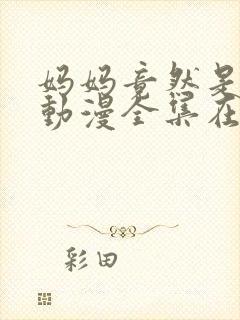 妈妈竟然是
動漫全集在
彩田